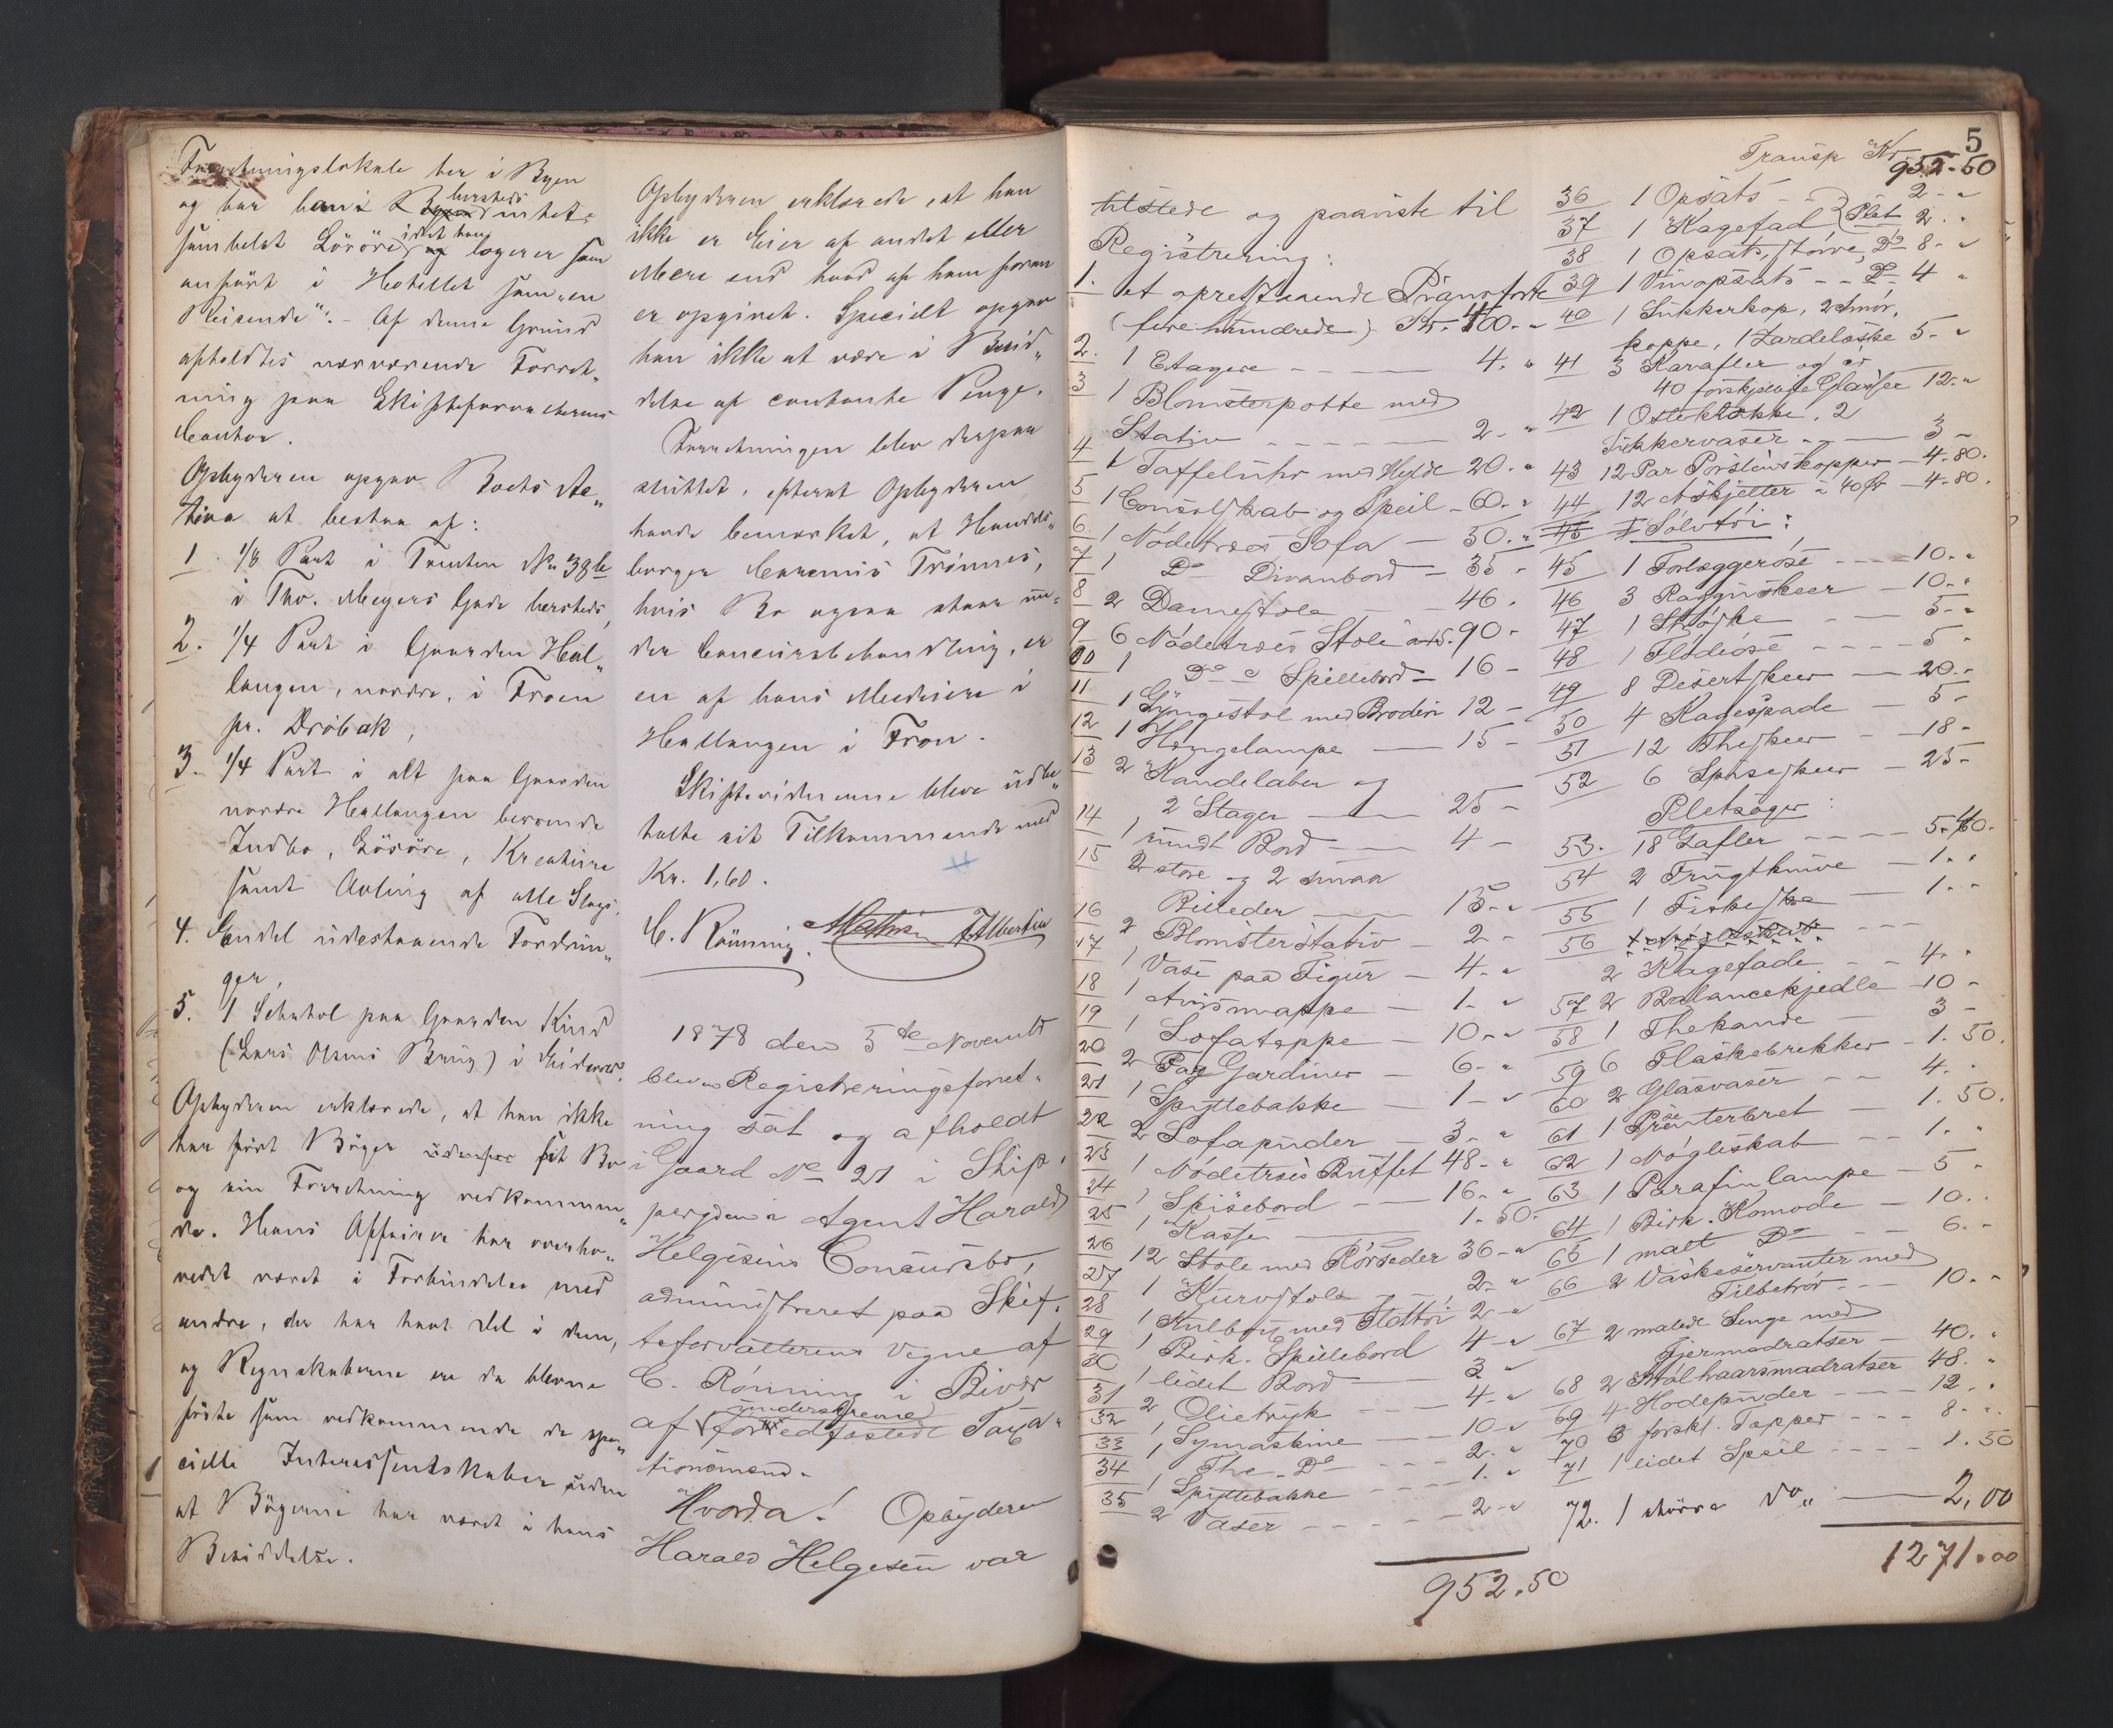 Forretningslokale her i Byen
og har hans Bopæl hersteds intet
sombelst Løsøre, idet han logerer som
anført i Hotellet som "en
Reisende". - Af denne Grund
afholdtes nærværende Forret„
ning paa Skifteforvalterens
Contor.
Opbyderen opgav Boets Ac„
tiva at bestaa af:
1 1/8 Part i Tomten No 38b
i Tho. Meyers Gade hersteds,
2. 1/4 Part i Gaarden Hal„
langen, nordre, i Froen
pr. Drøbak,
3. 1/4 Part i alt paa Gaarden
nordre Hallangen beroende
Indbo, Løsøre, Kreature
samt Avling af alle Slags.
4. Endel udestaaende Fordrin„
ger,
5. 1 Schatol paa Gaarden Rud
(Lars Olsens Brug) i
Opbyderen erklærede, at han ikke
har ført Bøger udenfor sit Bo
og sin Forretning vedkommen„
de. Hans Affairer har overho„
vedet været i Forbindelse med
andre, der har havt Del i dem,
og Regnskaberne ere da blevne
førte som vedkommende de spe„
cielle Interessentskaber uden
at Bøgerne har været i hans
Besiddelse.
Opbyderen erklærede, at han
ikke er Eier af andet eller
Mere end hvad af ham foran
er opgivet. Specielt opgav
han ikke at være i Besid„
delse af contante Penge.
Forretningen blev derpaa
sluttet, efterat Opbyderen
havde bemærket, at Handels„
borger Trønnes,
hvis Bo ogsaa staar un„
der Concursbehandling, er
en af hans Medeiere i
Hallangen i Fron.
Skiftevidnerne bleve udbe„
talte sit Tilkommende med
Kr. 1,60.
C. Rønning. Mathisen J. Albertsen
1878 den 5te Novembr
blev en Registreringsforret„
ning sat og afholdt
i Gaard No 21 i Skip„
pergaden i Agent Harald
Helgesens Concursbo,
administreret paa Skif„
teforvalterens Vegne af
C. Rønning i Bivær
af underskrevne Taxa„
tionsmænd.
Hvorda! Opbyderen
Harald Helgesen var
5
tilstede og paaviste til
Registrering:
1. et opretstaaende Pianoforte
(fire hundrede) Kr. 400. "
2. 1 Etagere - - - - - 4. "
3 1 Blomsterpotte med
Stativ - - - - - - 2. "
4 1 Taffeluhr med Hylde 20. "
5 1 Consolskab og Speil - 60. "
6. 1 Nødetræes Sofa - 50. "
7 1 Do Divanbord - 35 -
8 2 Damestole - 46.
9 6 Nødetræes Stole a 15. 90 -
10 1 Do Spillebord - 16 -
11 1 Gyngestol med Broderi 12 -
12 1 Hængelampe - 15 -
13 2 Kandelaber og
2 Stager - 25 -
14 1 rundt Bord - 4 -
15 2 store og 2 smaa
Billeder - 15. "
16 2 Blomsterstativ - 2 -
17 1 Vase paa Figur - 4. "
18 1 Avismappe - 1. "
19 1 Sofateppe - 10. "
20 2 Fag Gardiner - 6. "
21 1 Spyttebakke - 1 - "
22 2 Sofapuder - 3. "
23 1 Nødetræes Buffet 48 - "
24 1 Spisebord - 16. "
25 1 Kasse - 1. 50.
26 12 Stole med Rørseder 36 - "
27 1 Kurvstole - 2. "
28 1 Kulbox med Ildtøi 2 - "
29 1 Birk. Spillebord 4 - "
30 1 lidet Bord - 3 "
31 2 Olietryk - 4. "
32 1 Symaskine - 10. "
33 1 The Do - 2. "
34 1 Spyttebakke - 1. "
35 2 Vaser - - - - 2 - "
952.50
Transp Kr 952.50
36 1 Opsats - - 2 - "
37 1 Kagefad Plet 2. "
38 1 Opsats, større, Do 8 - "
39 1 Vinopsats - - Do 4 "
40 1 Sukkerkop, 2 Smør.
koppe, 1 Sardelæske 5 - "
41 3 Karafler og
40 forskjelige Glasser 12. "
42 1 Osteklokke, 2
Sukkervaser - - 3 -
43 12 Par Porslinskopper - 4. 80.
44 12 Askjetter a 40 ør - 4. 80.
45 1 Sølvtøi:
45 1 Forlæggerøse - 10. "
46 3 Raguskeer - 10. "
47 1 Strøske - 5. "
48 1 Flødeøse - - - 5 -
49 8 Desertskeer - 20. -
50 4 Kagespade - 5 -
51 12 Theskeer - 18 -
52 6 Spiseskeer - 25 -
Pletsager:
53. 18 Gafler - - - 5. 40.
54 2 Frugtknive - 1. "
55 1 Fiskeske - 1. "
56 1 Nøgleskab
2 Kagefade - - 4. "
57 2 Balancekjedle 10 -
58 1 Thekande - 3 -
59 6 Flaskebrekker - 1. 50.
60 2 Glasvaser - - 4. -
61 1 Presenterbret - 1. 50.
62 1 Nøgleskab - - 1. "
63 1 Parafinlampe - 5 -
64 1 Birk. Komode - 10. "
65 1 malt Do - 6. -
66 2 Vaskeservanter med
Tilbehør - - 10. -
67 2 malede Senge med
Fjermadratser - 40. "
68 2 Krølhaarsmadratser 48. "
69 4 Hodepuder - - - 12. "
70 3 forskl. Tepper - - - 8. "
71 1 lidet Speil - - - 1. 50
72. 1 større Do „ - 2,00
1271.00